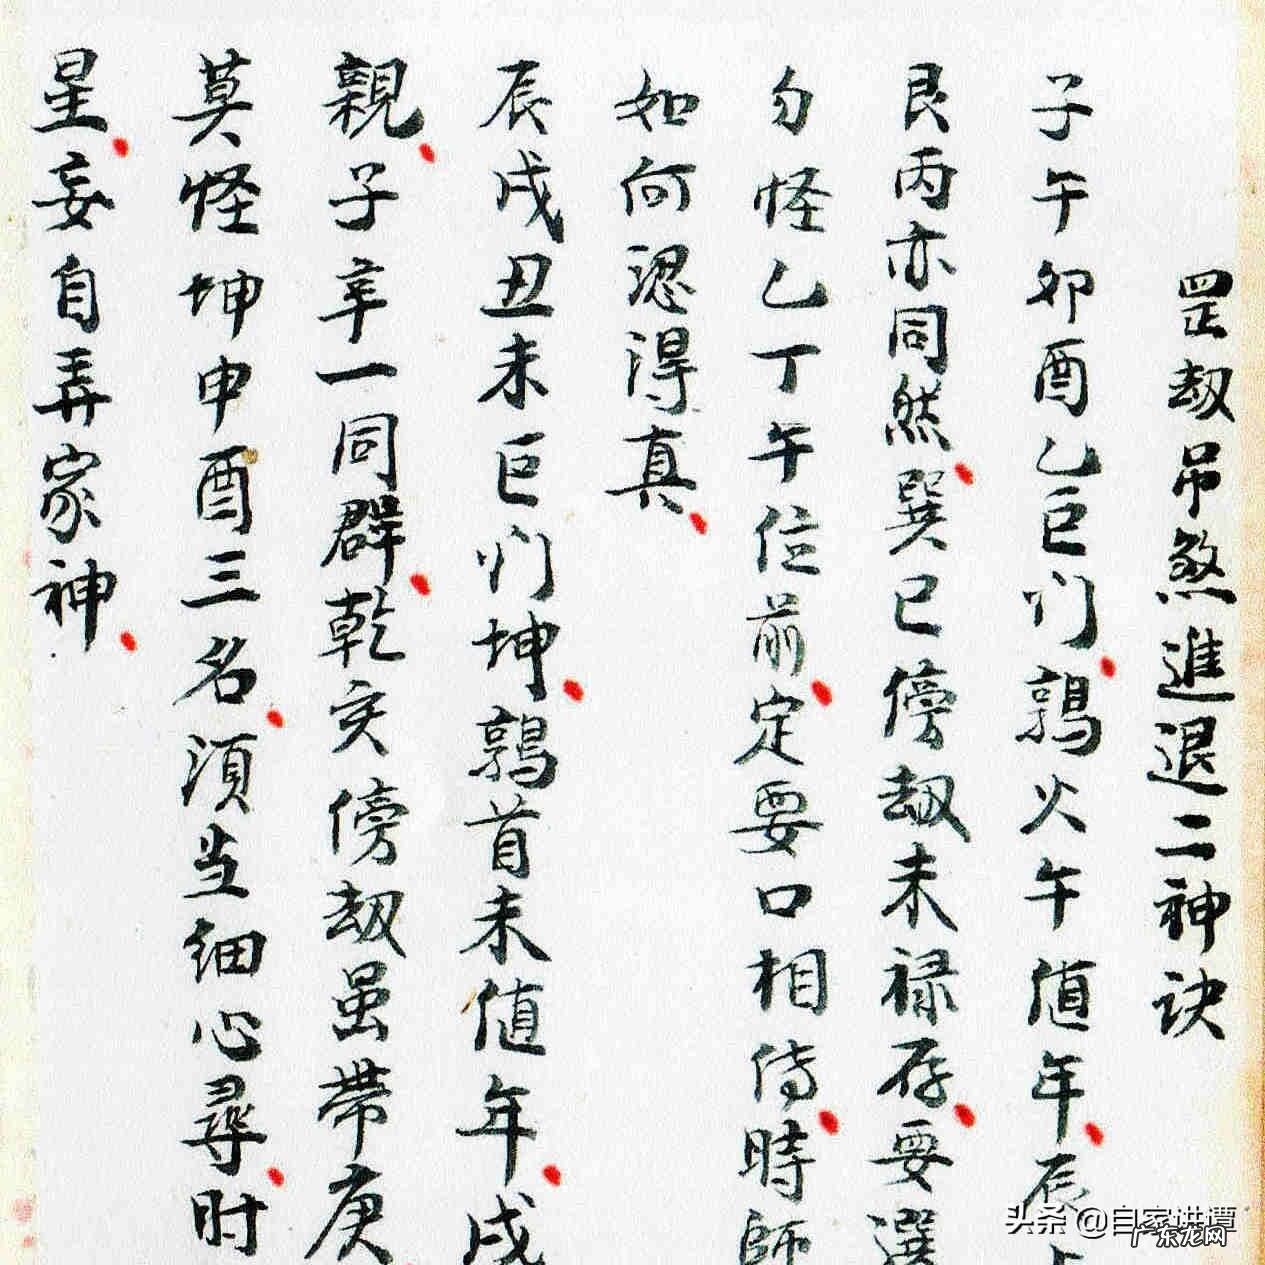 罡刼吊煞進退二神訣
子午卯酉乙巨门鶉火午值年辰
艮丙亦同然巽巳傍刼未禄存要選
勿怪乙丁午位前定要口相傳時師
如何認得真
辰戌丑未巨门坤鶉首未值年戌
親子辛一同群乾亥傍刼虽帶庚
莫怪坤申酉三名須当细心尋时
星妄自弄家神
头条 @自家讲坛
广东龙网